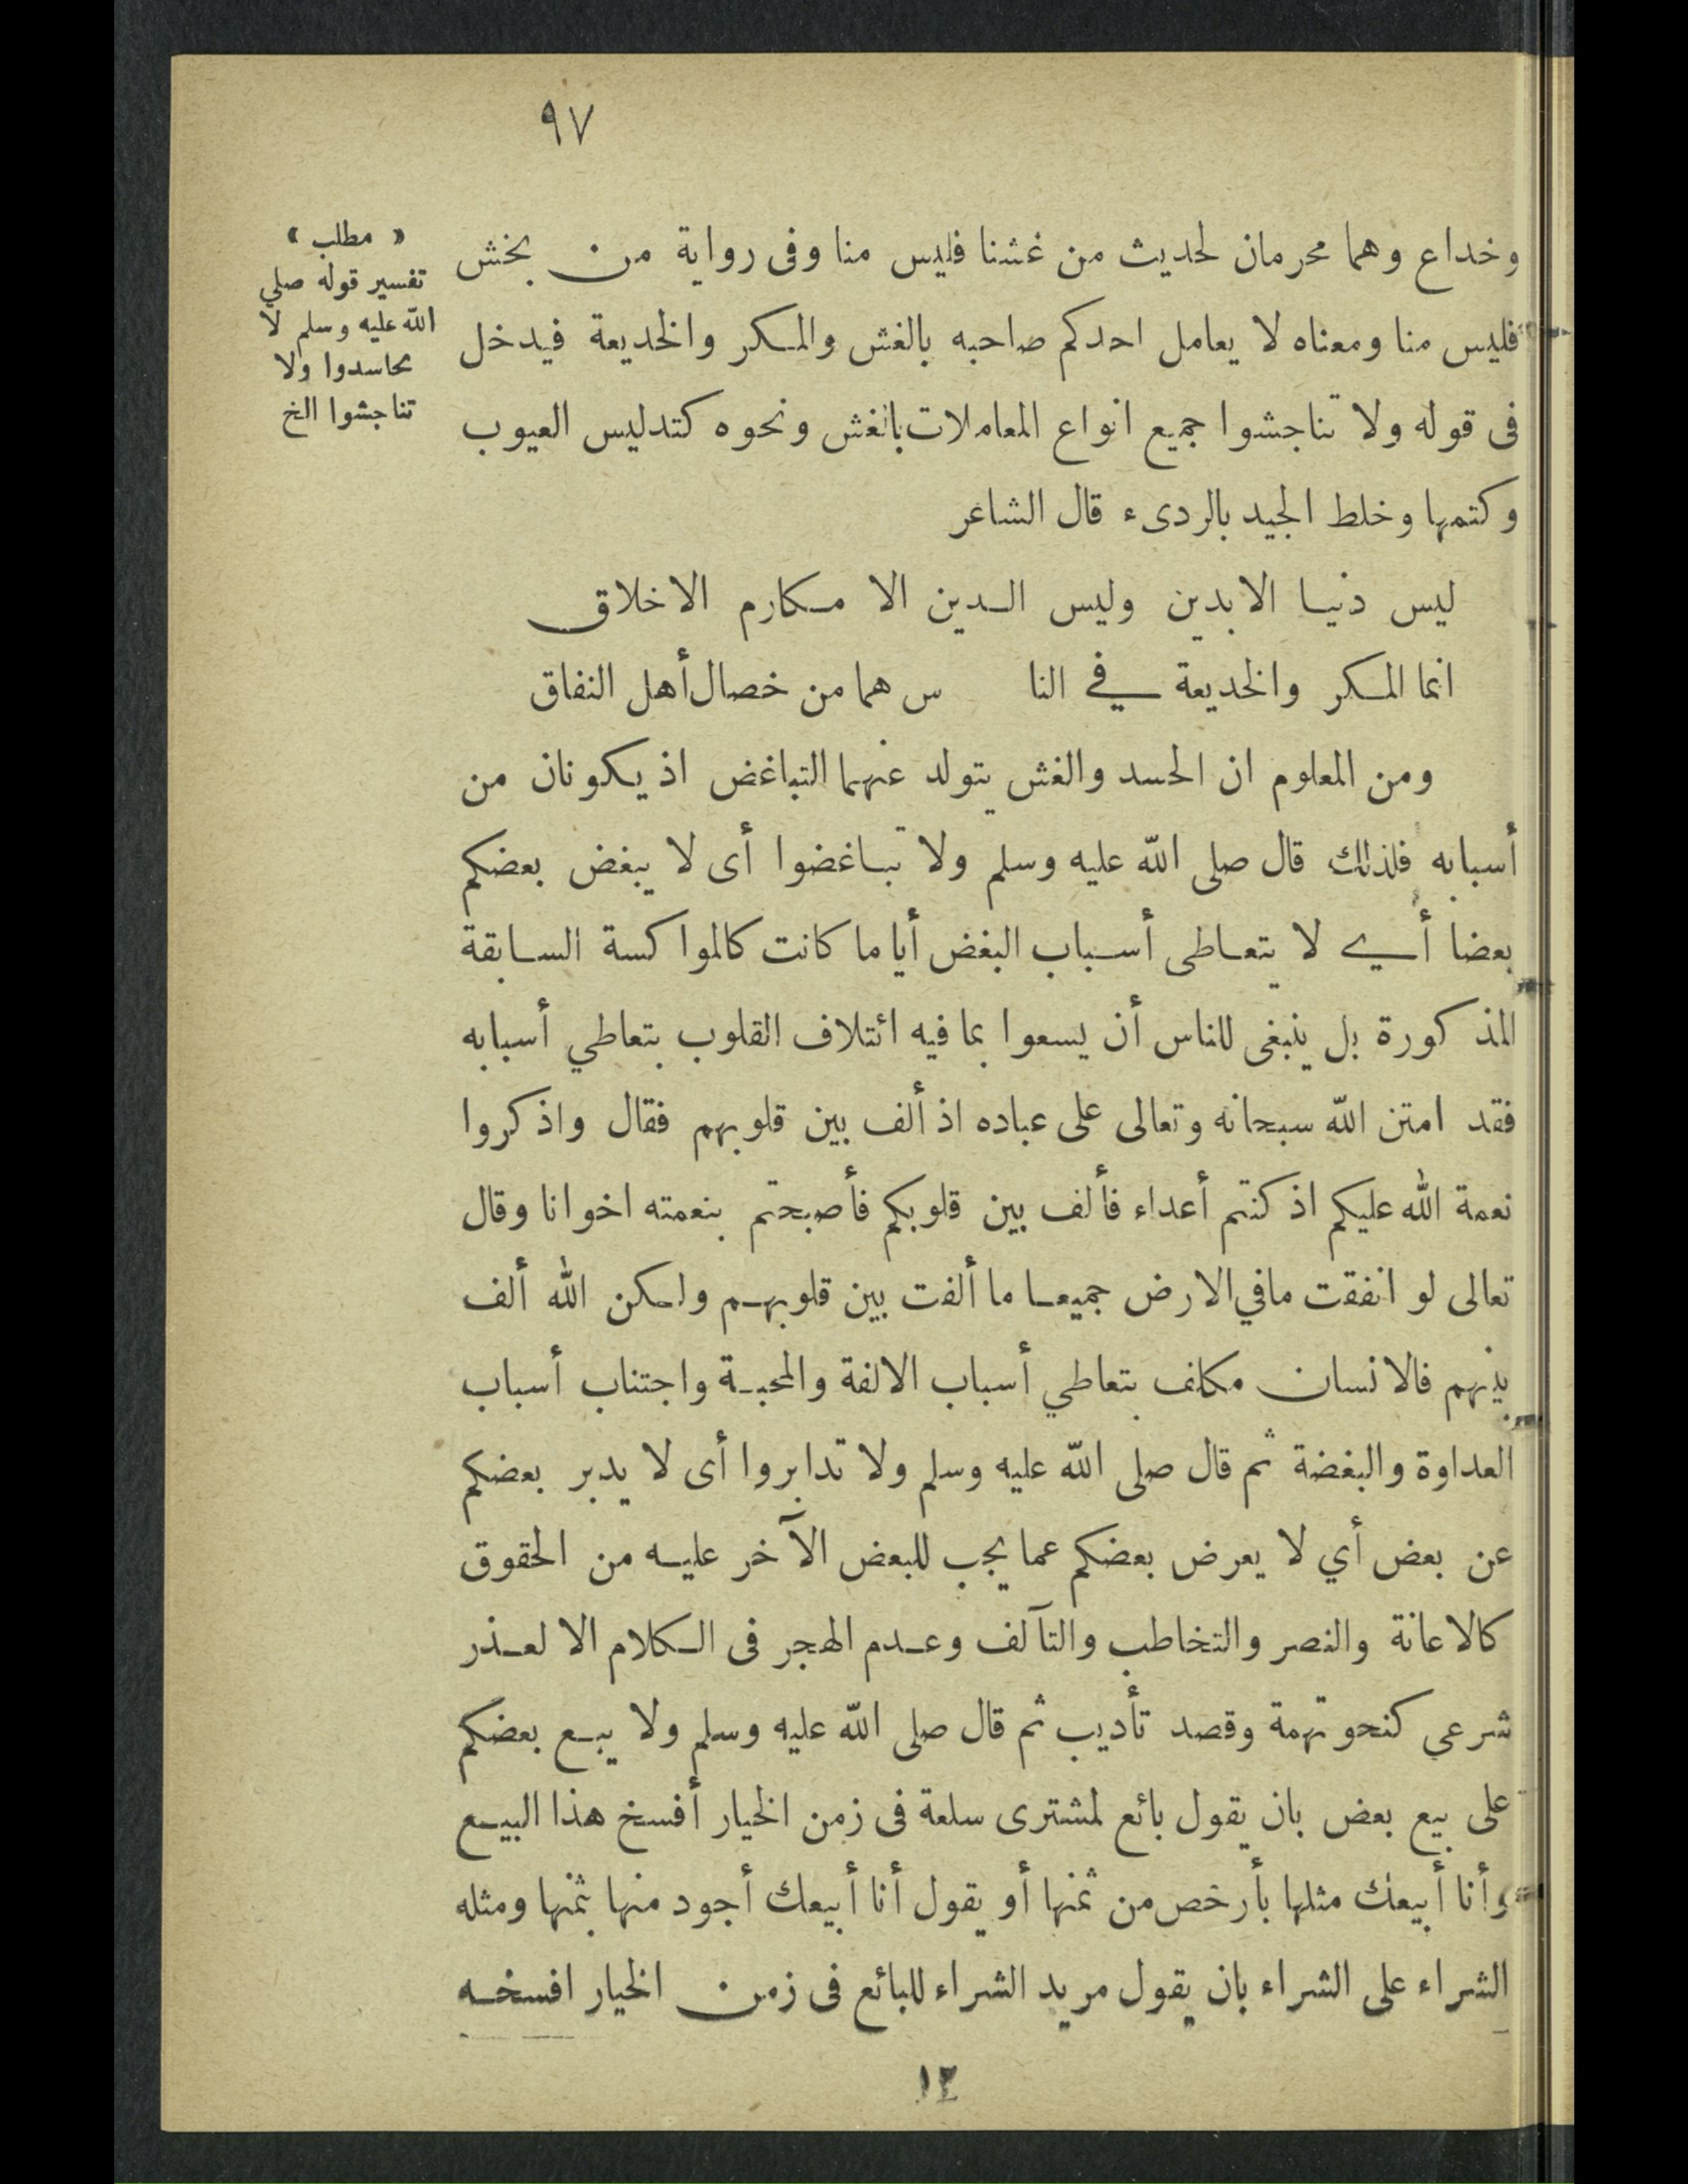 ٩٧
« مطلب »
تفسير قوله صلي
الله عليه وسلم لا
تحاسدوا ولا
تناجشوا الخ
وخداع وهما محرمان لحديث من غشنا فليس منا وفى رواية من نجش
فليس منا ومعناه لا يعامل احدكم صاحبه بالغش والمكر والخديعة فيدخل
فى قوله ولا تناجشوا جميع انواع المعاملات بالغش ونحوه كتدليس العيوب
وكتمها وخلط الجيد بالردىء قال الشاعر
ليس دنيا الا بدين وليس الدين الا مكارم الاخلاق
انما المكر والخديعة في النا س هما من خصال أهل النفاق
ومن المعلوم ان الحسد والغش يتولد عنهما التباغض اذ يكونان من
أسبابه فلذلك قال صلى الله عليه وسلم ولا تباغضوا أى لا يبغض بعضكم
بعضا أي لا يتعاطى أسباب البغض أيا ما كانت كالموا كسة السابقة
المذ كورة بل ينبغى للناس أن يسعوا بما فيه ائتلاف القلوب بتعاطي أسبابه
فقد امتن الله سبحانه وتعالى على عباده اذ ألف بين قلوبهم فقال واذ كروا
نعمة الله عليكم اذ كنتم أعداء فألف بين قلوبكم فأصبحتم بنعمته اخوانا وقال
تعالى لو انفقت مافي الارض جميعا ما ألفت بين قلوبهم ولكن الله ألف
بينهم فالانسان مكلف بتعاطي أسباب الالفة والمحبة واجتناب أسباب
العداوة والبغضة ثم قال صلى الله عليه وسلم ولا تدابروا أى لا يدبر بعضكم
عن بعض أي لا يعرض بعضكم عما يجب للبعض الآخر عليه من الحقوق
كالاعانة والنصر والتخاطب والتآلف وعدم الهجر فى الكلام الا لعذر
شرعي كنحو تهمة وقصد تأديب ثم قال صلى الله عليه وسلم ولا يبع بعضكم
على بيع بعض بان يقول بائع لمشترى سلعة فى زمن الخيار أفسخ هذا البيع
وأنا أبيعك مثلها بأرخص من ثمنها أو يقول أنا أبيعك أجود منها بثمنها ومثله
الشراء على الشراء بان يقول مريد الشراء للبائع فى زمن الخيار افسخه
١٣